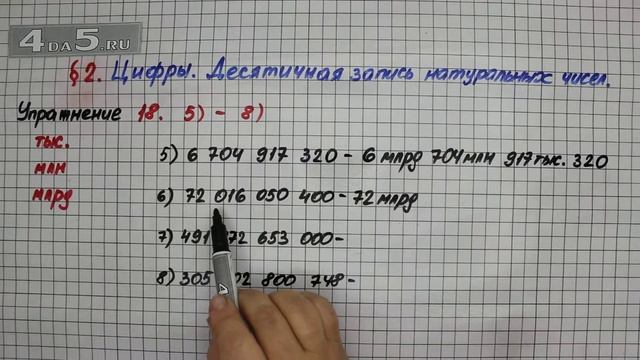 4DA5.RU
§2. Цифры. Десятичная запись натуральных чисел.
Упражнение 18. 5) - 8)
тыс.
млн
млрд
5) 6 704 917 320 - 6 млрд 704 млн 917 тыс. 320
6) 72 016 050 400 - 72 млрд
7) 491 72 653 000 -
8) 305 02 800 748 -